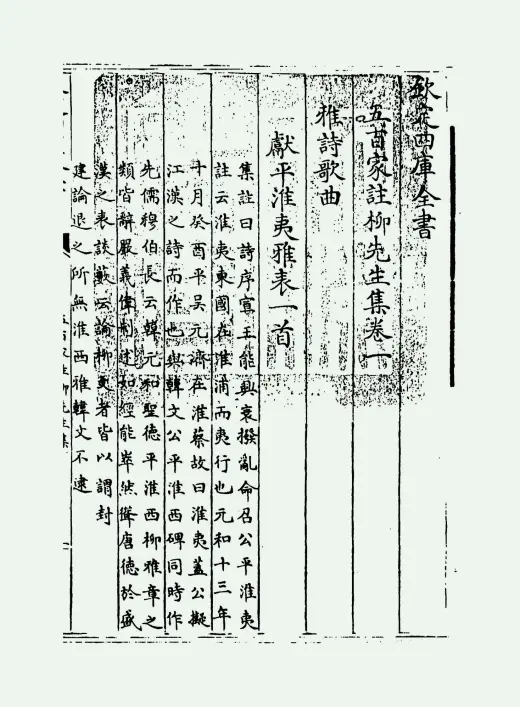 欽定四庫全書
五百家註柳先生集卷一
雅詩歌曲
獻平淮夷雅表一首
集註曰詩序宣王能興衰撥亂命召公平淮夷
註云淮夷東國在淮浦而夷行也元和十三年
十月癸酉平吳元濟在淮蔡故曰淮夷蓋公擬
江漢之詩而作也與韓文公平淮西碑同時作
先儒穆伯長云韓元和聖德平淮西柳雅章之
類皆辭嚴義偉制述如經能崒然聳唐德於盛
漢之表談藪云論柳文者皆以謂封
建論退之所無淮西雅韓文不逮
五百家註柳先生集